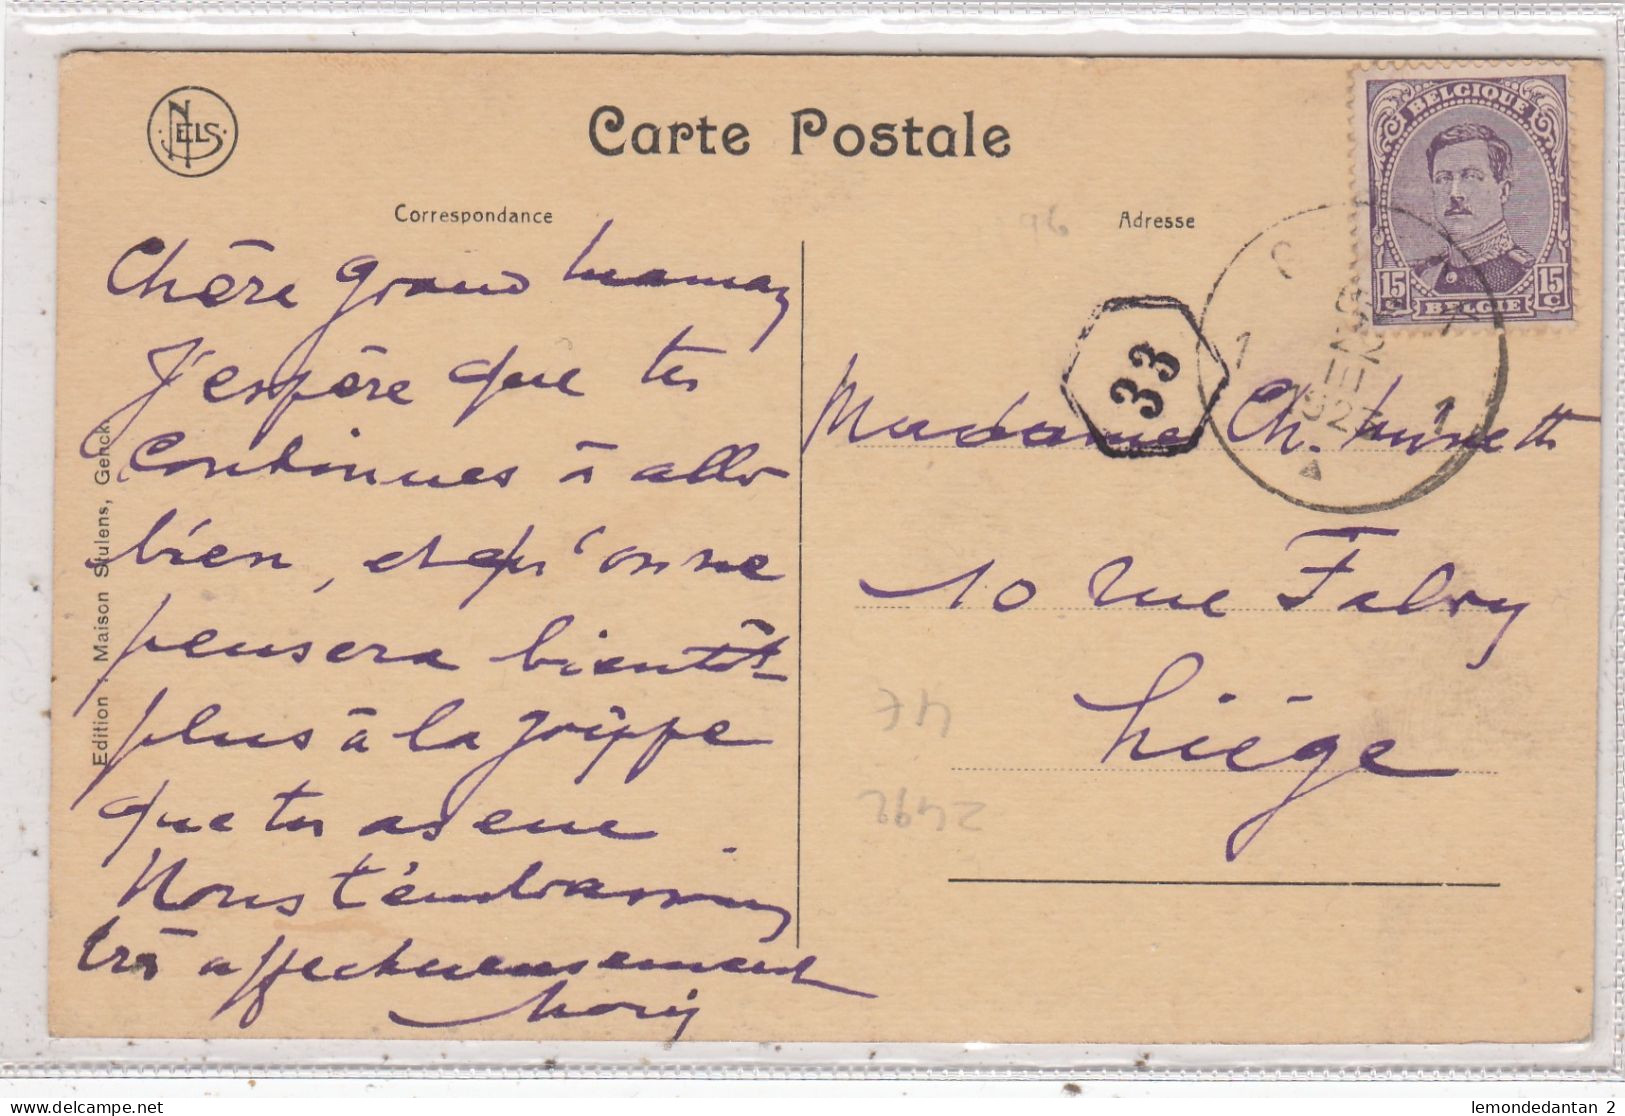 NELS
Carte Postale
Correspondance
Adresse
BELGIQUE
15 C 15 C
BELGIE
1 1
33
Chère grand maman
J'espère que tu
continues à aller
bien, et qu'on ne
pensera bientôt
plus à la grippe
que tu as eue.
Nous t'embrassons
très affectueusement
Madame Ch.
10 rue Fabry
Liège
Edition : Maison Stulens, Genck.
delcampe.net
lemondedantan 2